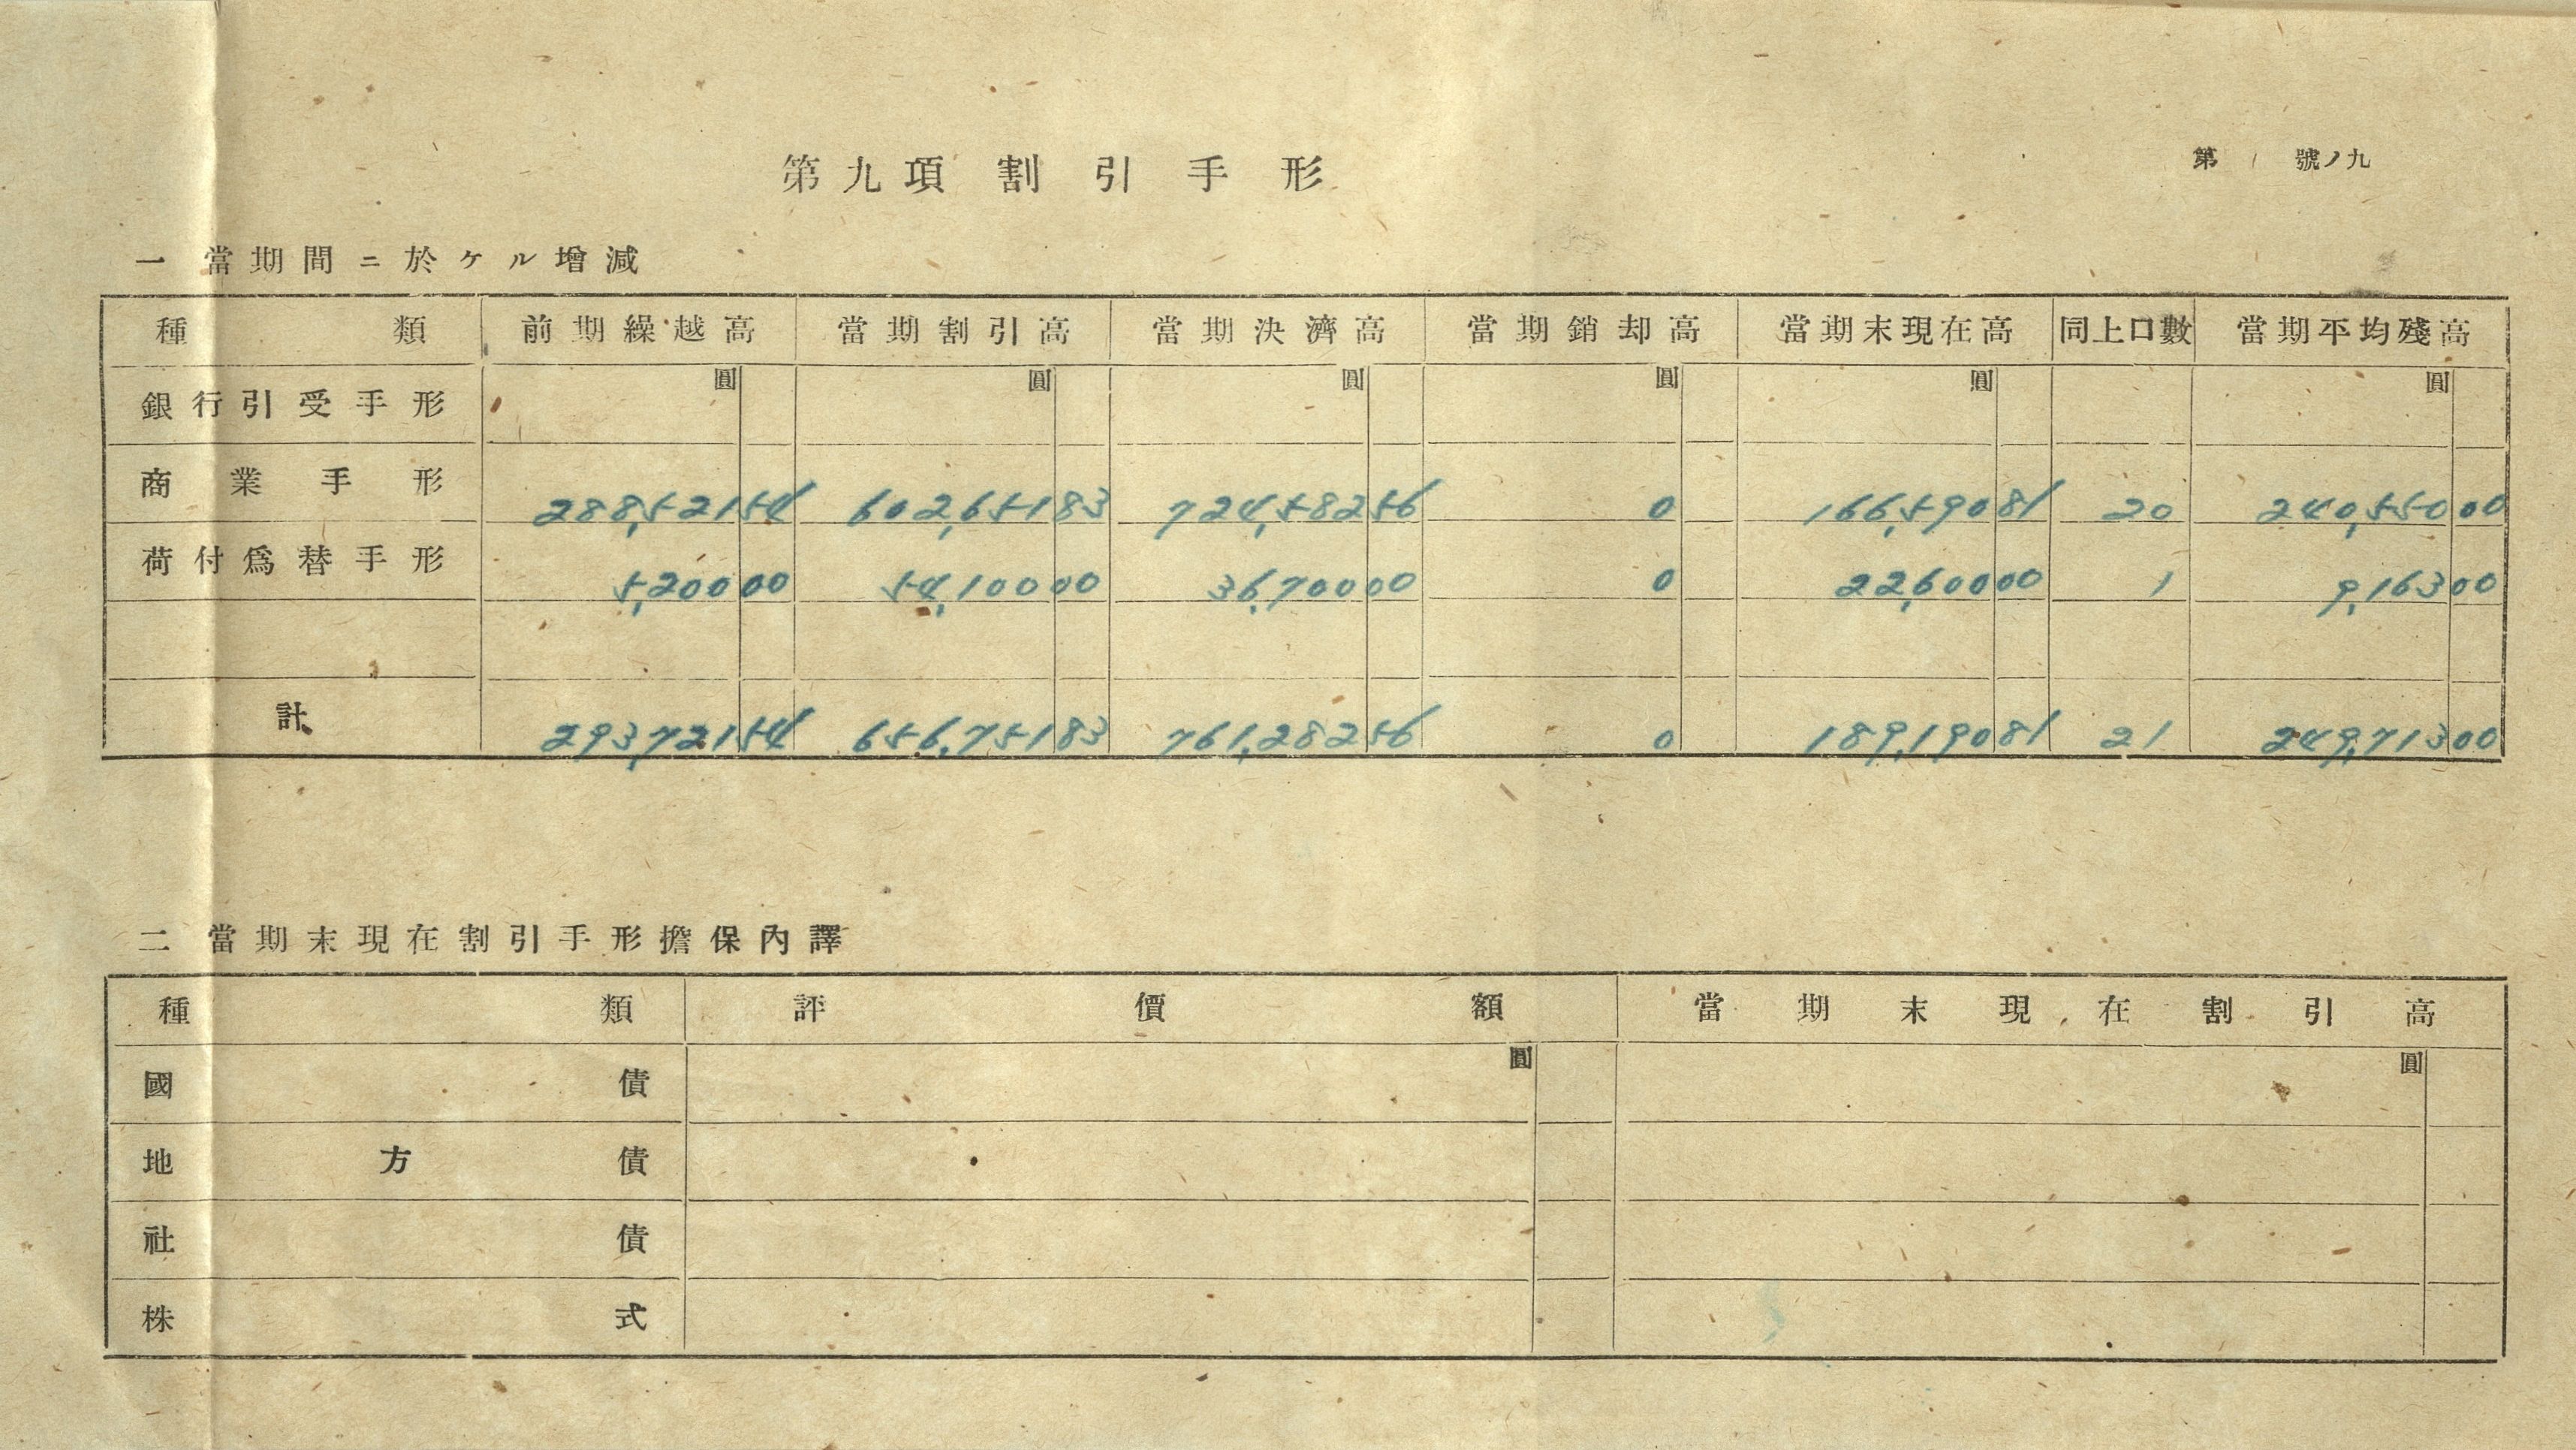 第九項 割引手形
第 號ノ九
一 當期間ニ於ケル增減
種類 前期繰越高 當期割引高 當期決濟高 當期銷却高 當期末現在高 同上口數 當期平均殘高
圓 圓 圓 圓 圓 圓
銀行引受手形
商業手形 288,521 54 602,651 83 724,582 56 0 166,590 81 20 240,550 00
荷付爲替手形 5,200 00 54,100 00 36,700 00 0 22,600 00 1 9,163 00
計 293,721 54 656,751 83 761,282 56 0 189,190 81 21 249,713 00
二 當期末現在割引手形擔保內譯
種類 評價額 當期末現在割引高
圓 圓
國債
地方債
社債
株式